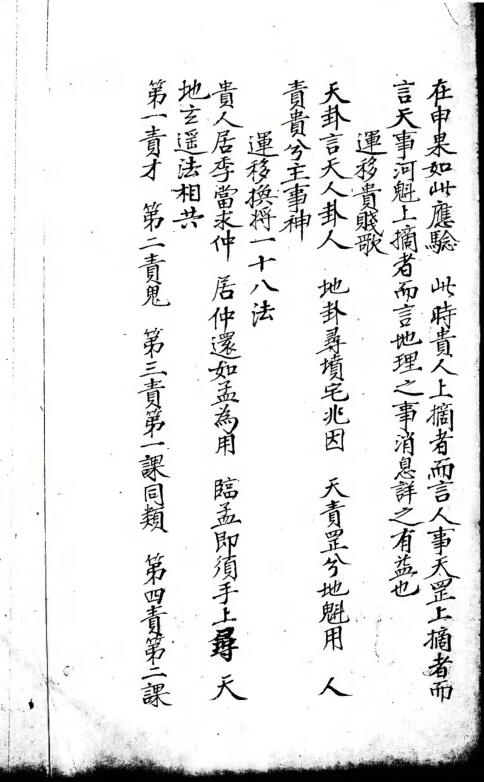 在申果如此應驗　此時貴人上摘者而言人事天罡上摘者而
言天事河魁上摘者而言地理之事消息詳之有益也
運移貴賤歌
天卦言天人卦人　地卦尋墳宅兆因　天責罡兮地魁用　人
責貴兮主事神
運移換將一十八法
貴人居季當求仲　居仲還如孟為用　臨孟即須手上尋　天
地玄遥法相共
第一責才　第二責鬼　第三責第一課同類　第四責第二課